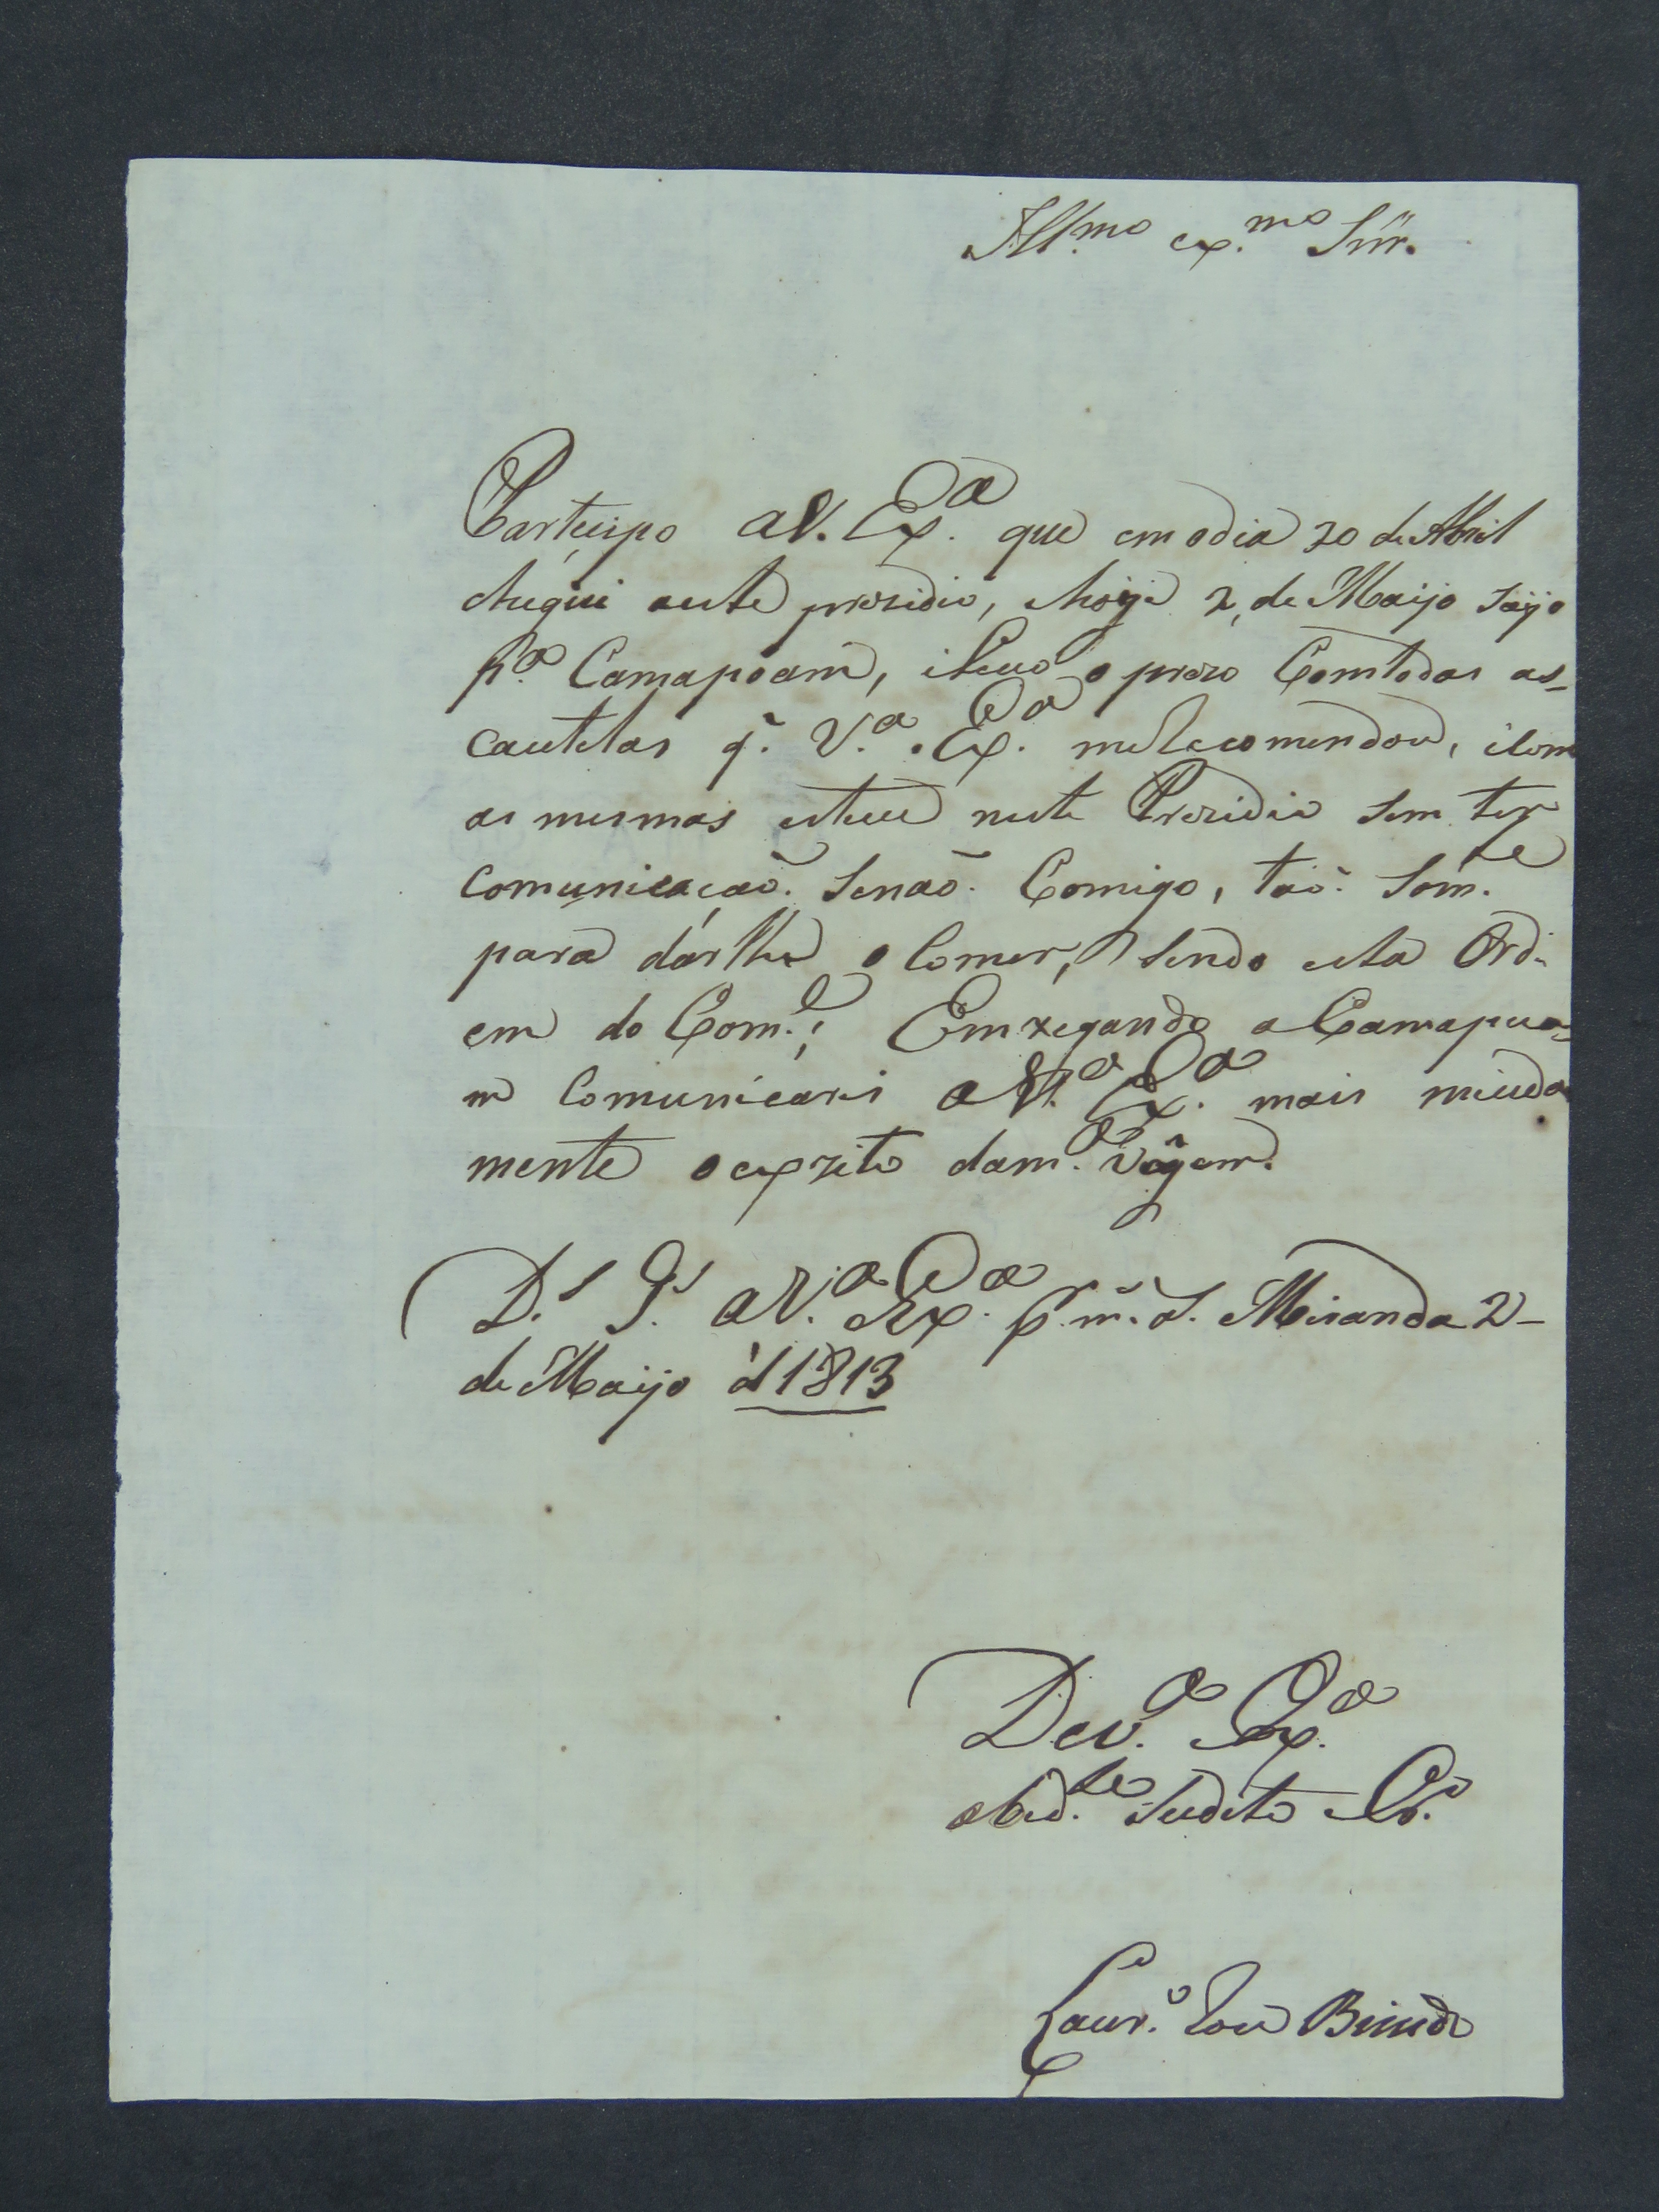 Ill.mo ex.mo Snr.
Partecipo a V. Ex.a que em o dia 20 de Abril
chegui aeste prezidio, ehoije 2, de Maijo saijo
p.a Camapoam, ileuo o prezo Comtodas as-
cautelas q. V.a Ex.a me Recomendou, icom
as mesmas esteue neste Prezidio sem ter
comunicação senaõ Comigo, taõ som.te
para dar lhe o Comer, sendo esta Ord-
em do Com.e; Emxegando a Camapua-
m Comunicarei a V.a Ex.a mais miuda
mente o exzito dam.a Viagem.
D.s G.e a V.a Ex.a p.r m.s a. Miranda 2-
de Maijo d 1813
De V.a Ex.a
obed.te Sudito Cr.o
Laur.o